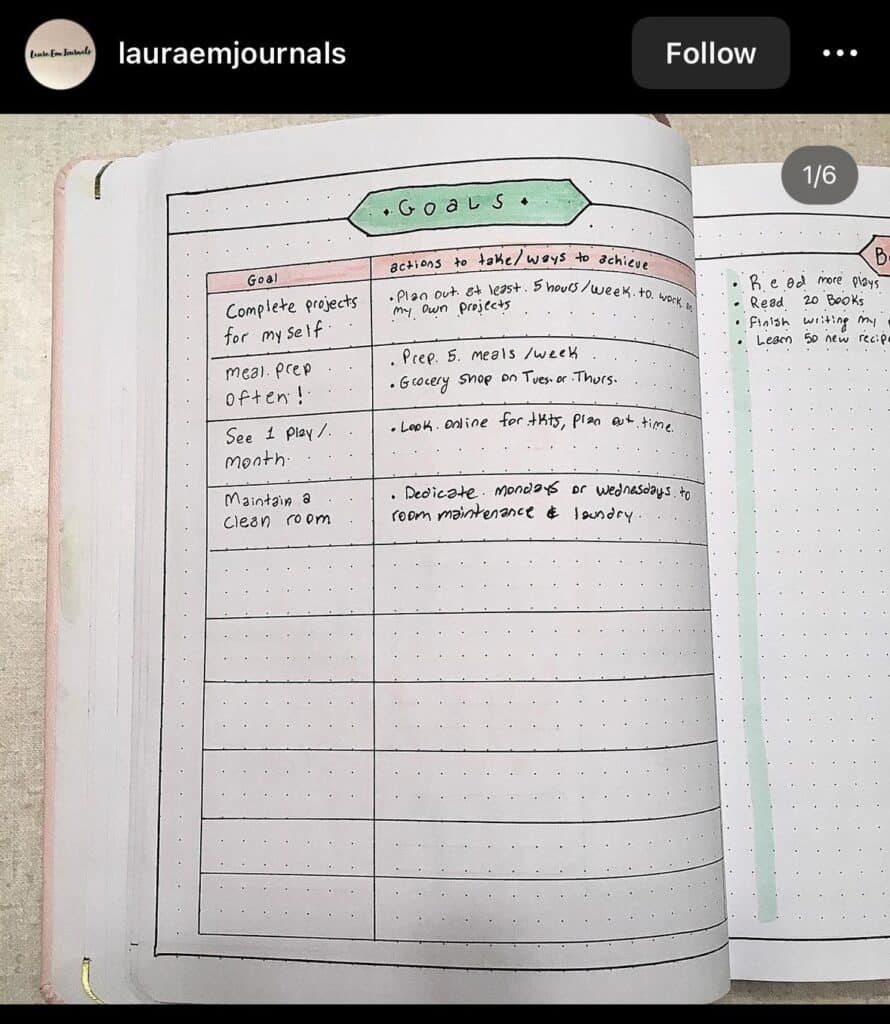 Laura Em Journals
lauraemjournals
Follow
1/6
GOALS
Goal
actions to take/ways to achieve
Complete projects
for myself
• Plan out at least 5 hours/week to work on
my own projects
meal prep
often!
• Prep 5 meals/week
• Grocery shop on Tues. or Thurs.
See 1 play/
month
• Look online for tkts, plan out time.
Maintain a
clean room
• Dedicate mondays or wednesdays to
room maintenance & laundry.
B
• Read more plays
• Read 20 Books
• Finish writing my
• Learn 50 new recip